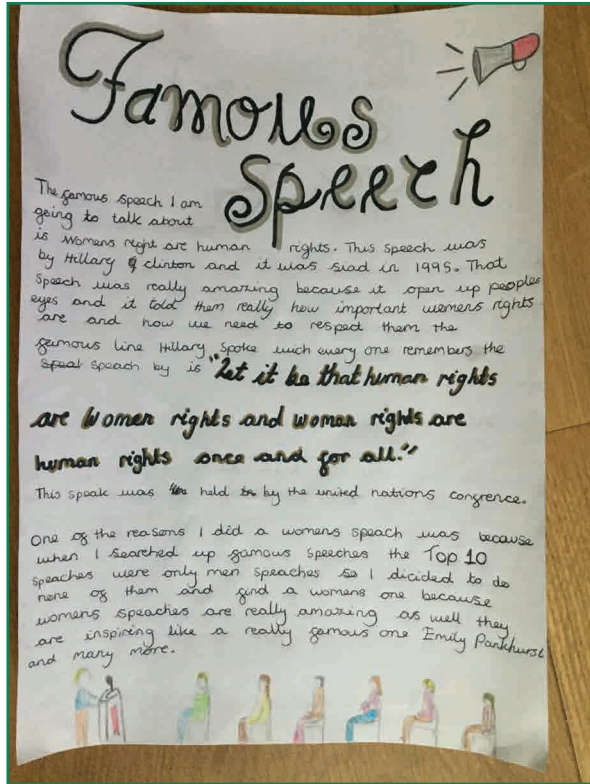 Famous
Speech
The famous speech I am
going to talk about
is Womens right are human rights. This speech was
by Hillary clinton and it was siad in 1995. That
Speech was really amazing because it open up peoples
eyes and it told them really how important womens rights
are and how we need to respect them the
famous line Hillary spoke wich every one remembers the
speat speach by is "Let it be that human rights
are women rights and woman rights are
human rights once and for all."
This speak was held by the united nations congrence.
One of the reasons I did a womens speach was because
when I searched up famous speeches the Top 10
speaches were only men speaches so I dicided to do
none of them and find a womens one because
womens speaches are really amazing as well they
are inspiring like a really famous one Emily Pankhurst
and many more.